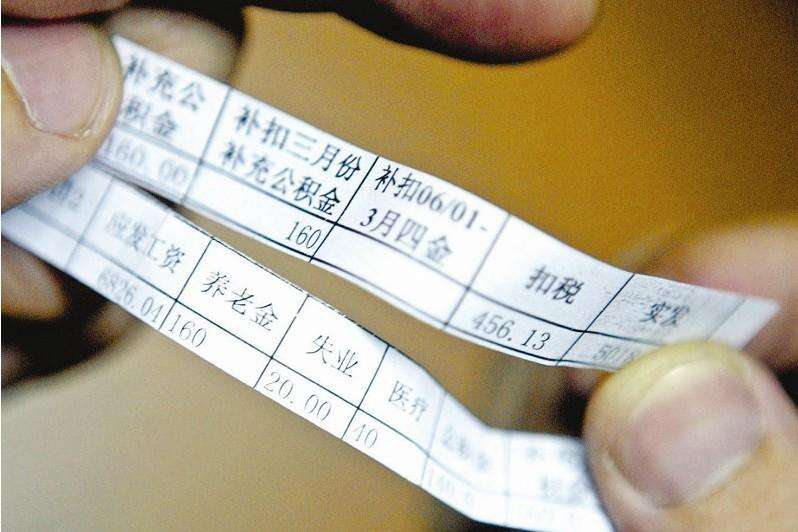 补充公
积金
补扣三月份
补充公积金
补扣06/01-
3月四金
扣税
实发
160.00
160
456.13
应发工资
养老金
失业
医疗
6826.04
160
20.00
40